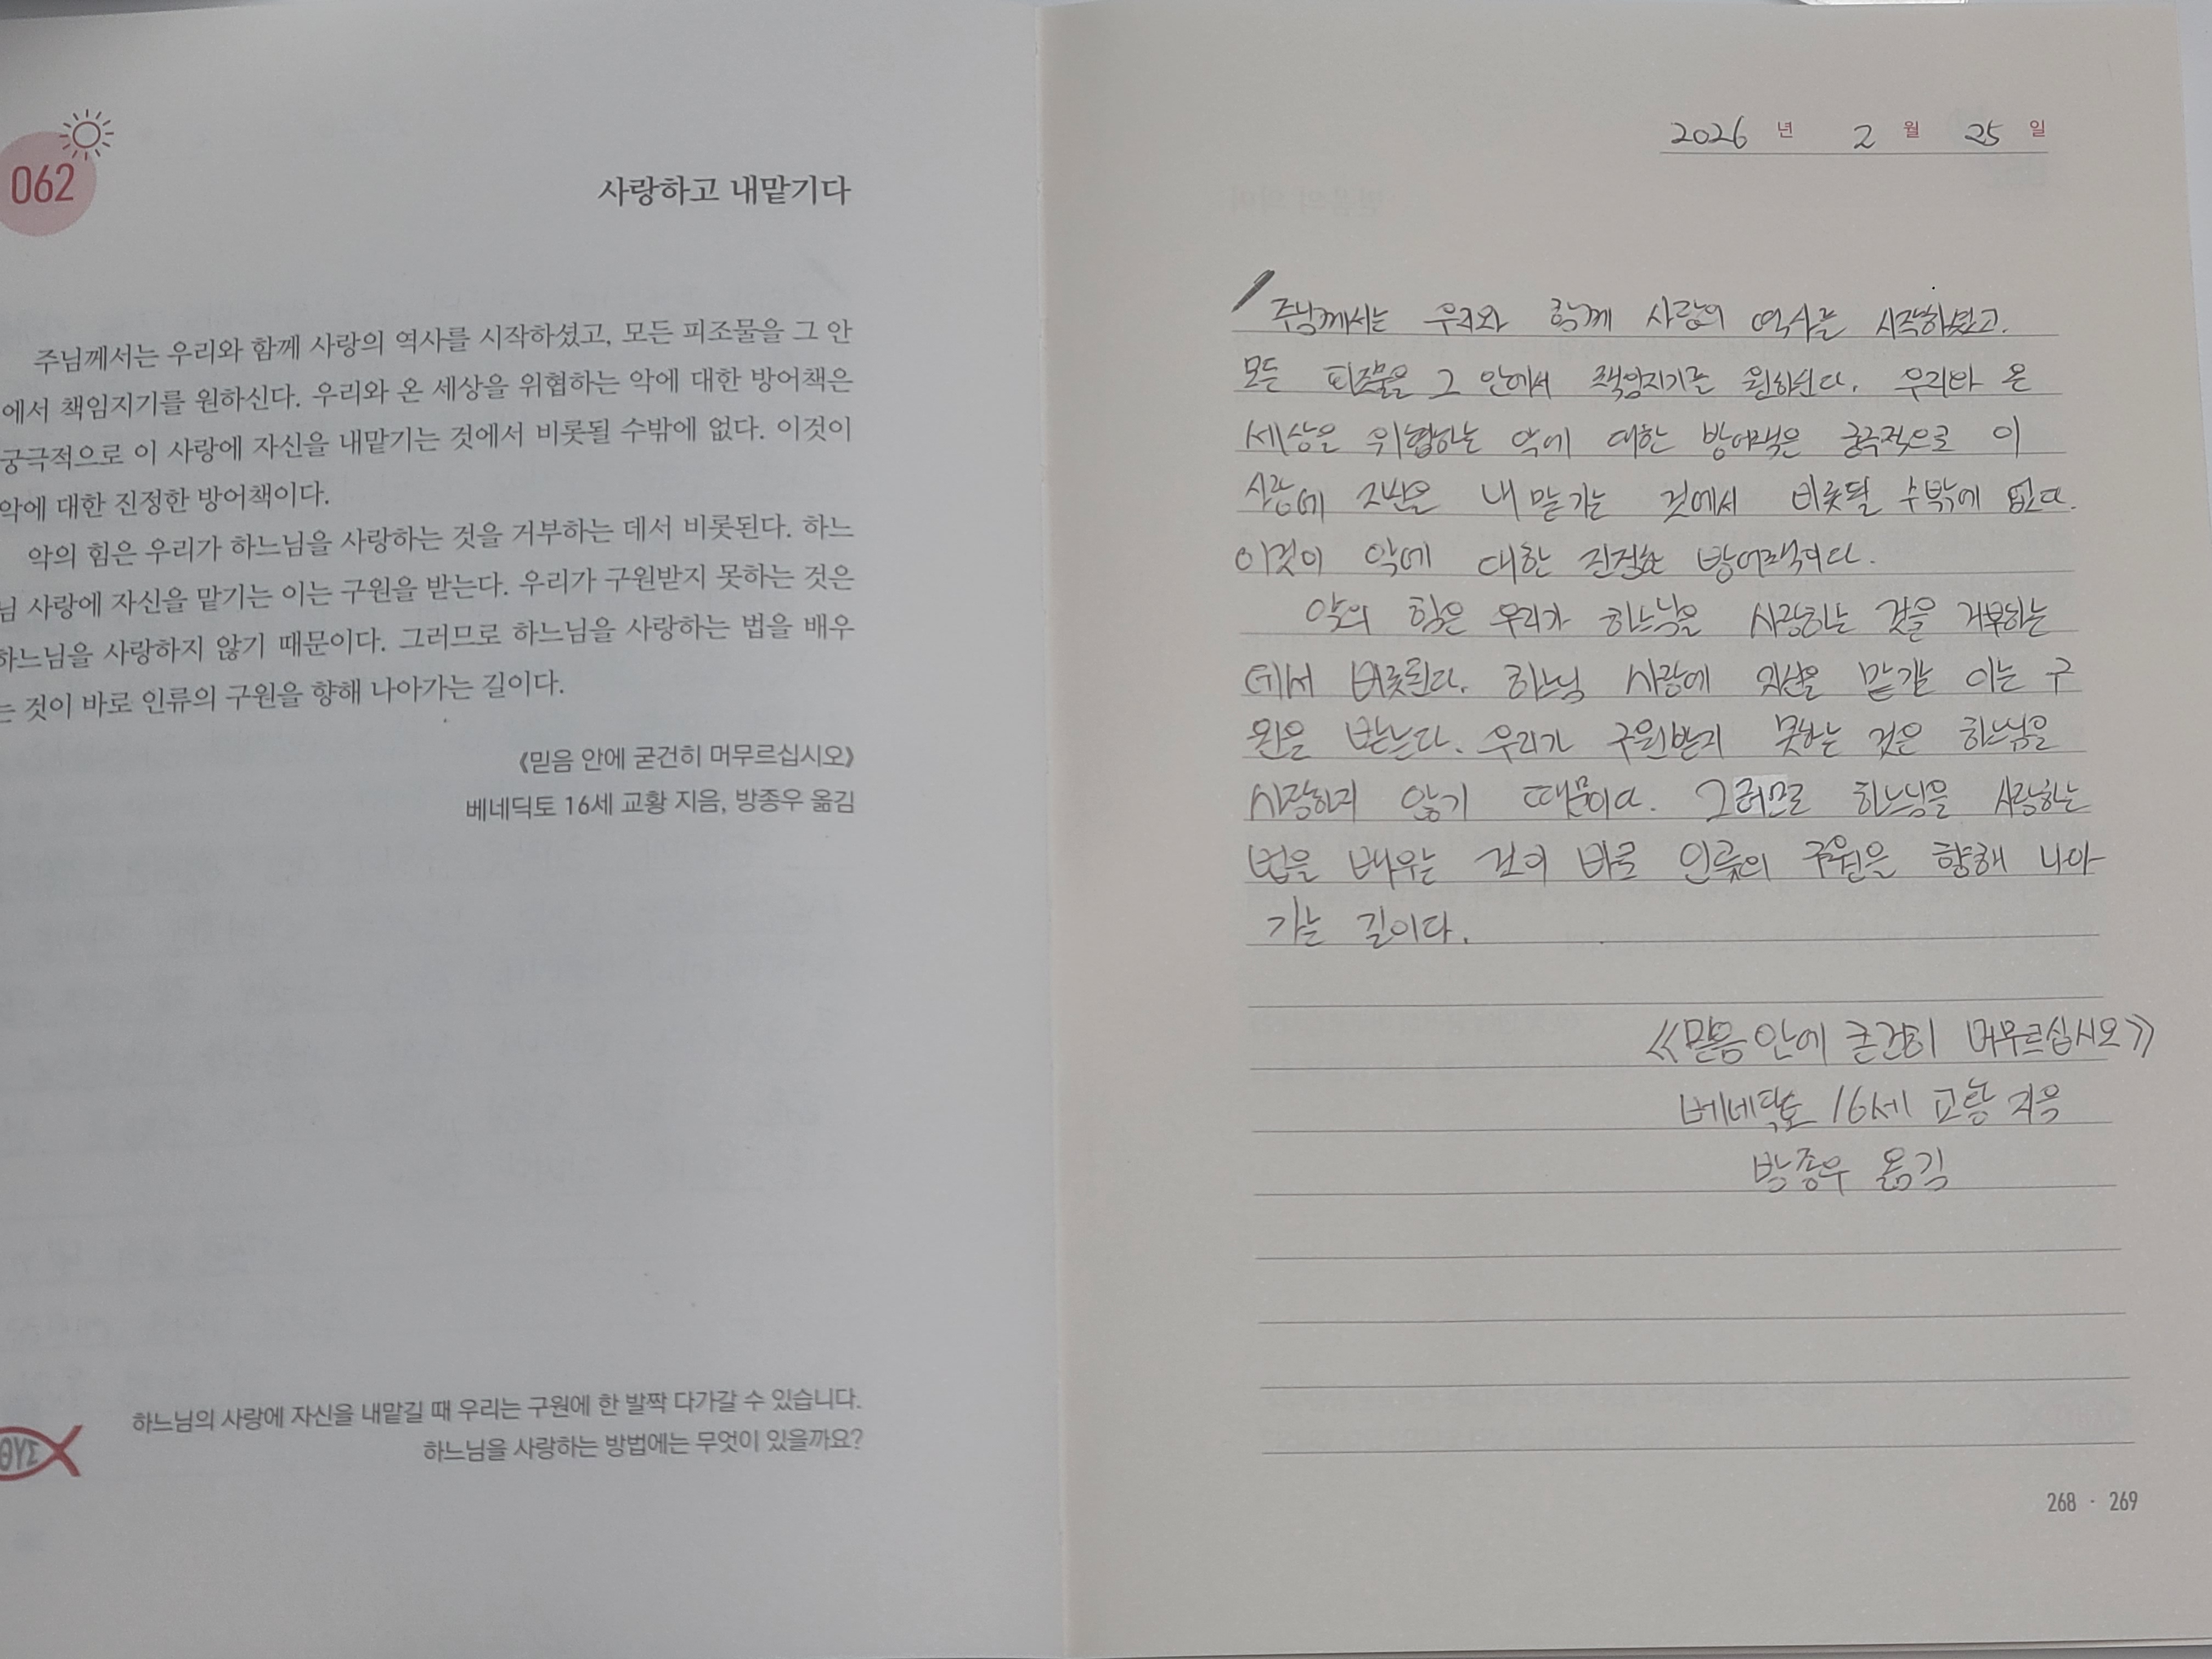 062
사랑하고 내맡기다
주님께서는 우리와 함께 사랑의 역사를 시작하셨고, 모든 피조물을 그 안
에서 책임지기를 원하신다. 우리와 온 세상을 위협하는 악에 대한 방어책은
궁극적으로 이 사랑에 자신을 내맡기는 것에서 비롯될 수밖에 없다. 이것이
악에 대한 진정한 방어책이다.
악의 힘은 우리가 하느님을 사랑하는 것을 거부하는 데서 비롯된다. 하느
님 사랑에 자신을 맡기는 이는 구원을 받는다. 우리가 구원받지 못하는 것은
하느님을 사랑하지 않기 때문이다. 그러므로 하느님을 사랑하는 법을 배우
는 것이 바로 인류의 구원을 향해 나아가는 길이다.
《믿음 안에 굳건히 머무르십시오》
베네딕토 16세 교황 지음, 방종우 옮김
하느님의 사랑에 자신을 내맡길 때 우리는 구원에 한 발짝 다가갈 수 있습니다.
하느님을 사랑하는 방법에는 무엇이 있을까요?
ΘΥΣ
2026 년 2 월 25 일
주님께서는 우리와 함께 사랑의 역사를 시작하셨고.
모든 피조물을 그 안에서 책임지기를 원하신다. 우리와 온
세상을 위협하는 악에 대한 방어책은 궁극적으로 이
사랑에 자신을 내 맡기는 것에서 비롯될 수밖에 없다.
이것이 악에 대한 진정한 방어책이다.
악의 힘은 우리가 하느님을 사랑하는 것을 거부하는
데서 비롯된다. 하느님 사랑에 자신을 맡기는 이는 구
원을 받는다. 우리가 구원받지 못하는 것은 하느님을
사랑하지 않기 때문이다. 그러므로 하느님을 사랑하는
법을 배우는 것이 바로 인류의 구원을 향해 나아
가는 길이다.
《믿음 안에 굳건히 머무르십시오》
베네딕토 16세 교황 지음
방종우 옮김
268 · 269